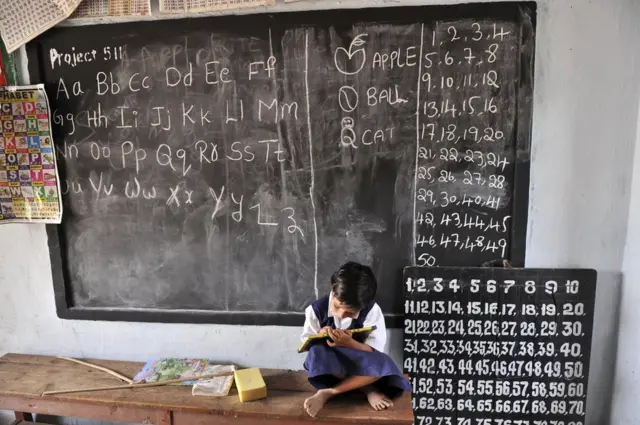 Project 511
Aa Bb Cc Dd Ee Ff
Gg Hh Ii Jj Kk Ll Mm
Nn Oo Pp Qq Rr Ss Tt
Uu Vv Ww Xx Yy Zz
APPLE
BALL
CAT
1, 2, 3 4
5, 6, 7, 8
9, 10, 11, 12
13, 14, 15, 16
17, 18, 19, 20
21, 22, 23, 24
25, 26, 27, 28
29, 30, 40, 41
42, 43, 44, 45
46, 47, 48, 49
50
1, 2, 3, 4, 5, 6, 7, 8, 9, 10
11, 12, 13, 14, 15, 16, 17, 18, 19, 20.
21, 22, 23, 24, 25, 26, 27, 28, 29, 30.
31, 32, 33, 34, 35, 36, 37, 38, 39, 40.
41, 42, 43, 44, 45, 46, 47, 48, 49, 50.
51, 52, 53, 54, 55, 56, 57, 58, 59, 60.
61, 62, 63, 64, 65, 66, 67, 68, 69, 70.